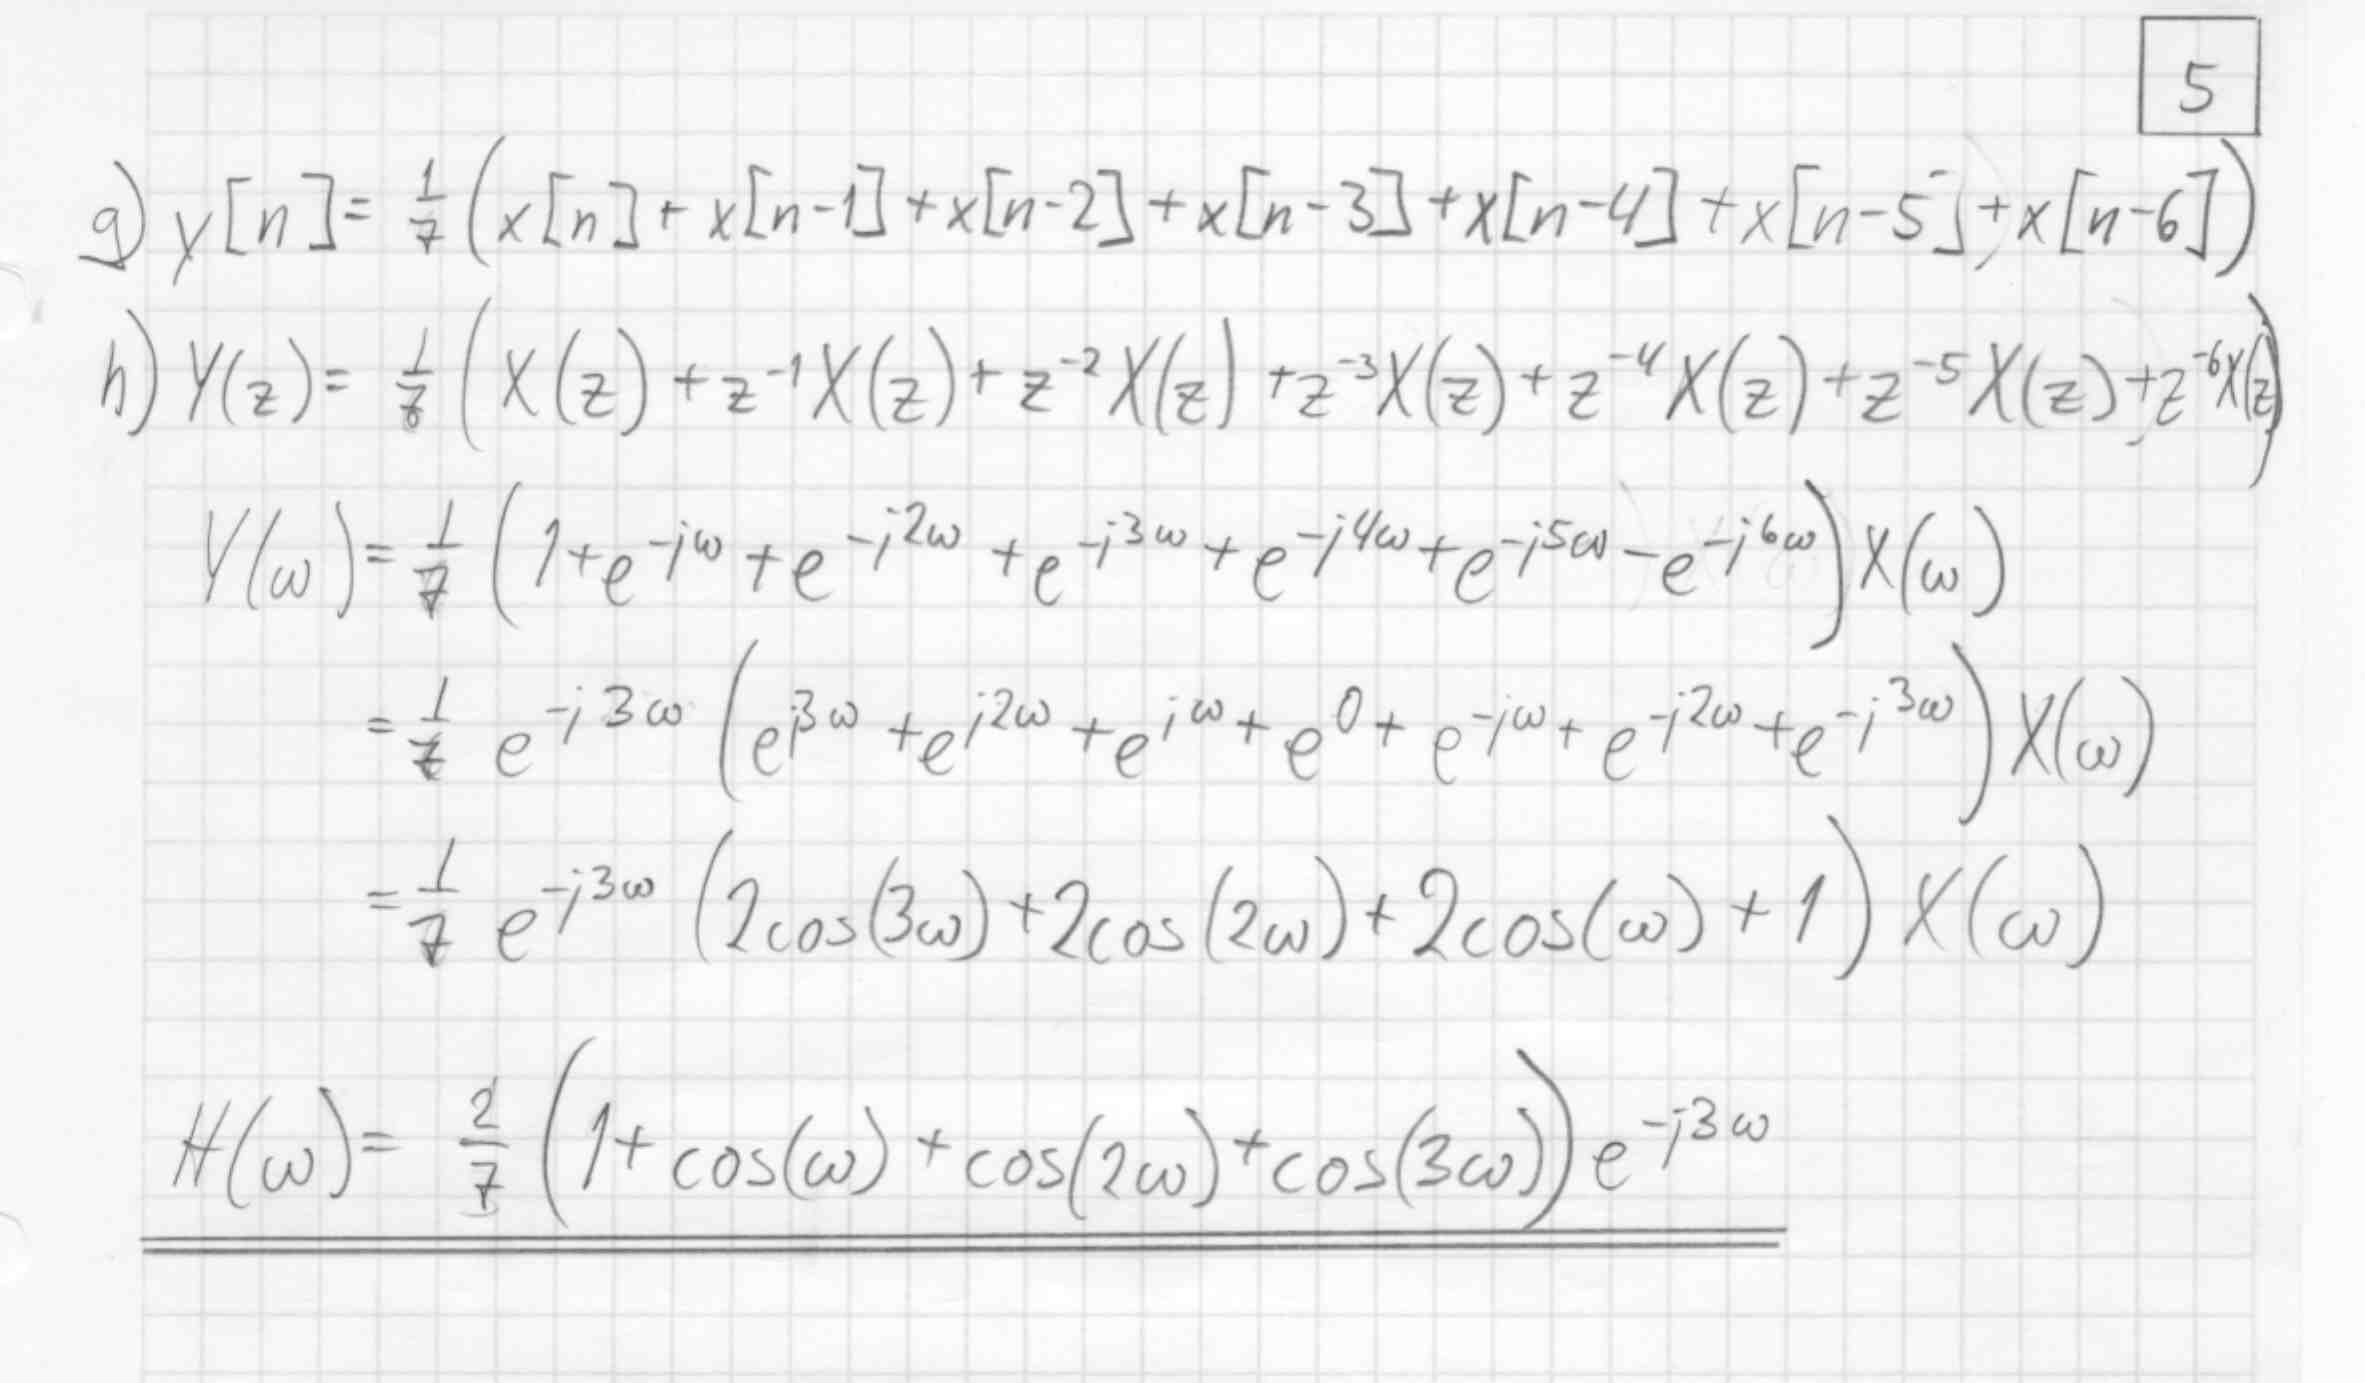 5
g) y[n] = 1/7 (x[n] + x[n-1] + x[n-2] + x[n-3] + x[n-4] + x[n-5] + x[n-6])
h) Y(z) = 1/7 (X(z) + z⁻¹X(z) + z⁻²X(z) + z⁻³X(z) + z⁻⁴X(z) + z⁻⁵X(z) + z⁻⁶X(z))
Y(ω) = 1/7 (1 + e^{-jω} + e^{-j2ω} + e^{-j3ω} + e^{-j4ω} + e^{-j5ω} - e^{-j6ω}) X(ω)
= 1/7 e^{-j3ω} (e^{j3ω} + e^{j2ω} + e^{jω} + e^{0} + e^{-jω} + e^{-j2ω} + e^{-j3ω}) X(ω)
= 1/7 e^{-j3ω} (2cos(3ω) + 2cos(2ω) + 2cos(ω) + 1) X(ω)
H(ω) = 2/7 (1 + cos(ω) + cos(2ω) + cos(3ω)) e^{-j3ω}